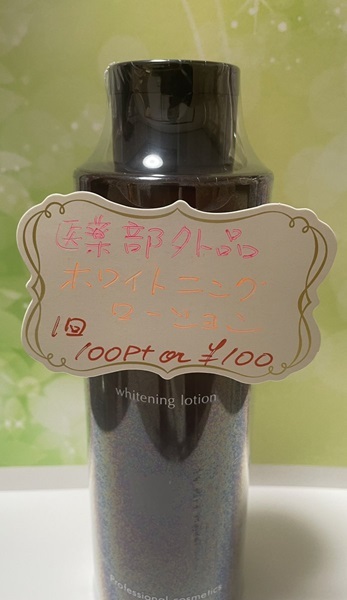 医薬部外品
ホワイトニング
ローション
1回
100Pt or ¥100
whitening lotion
Professional cosmetics